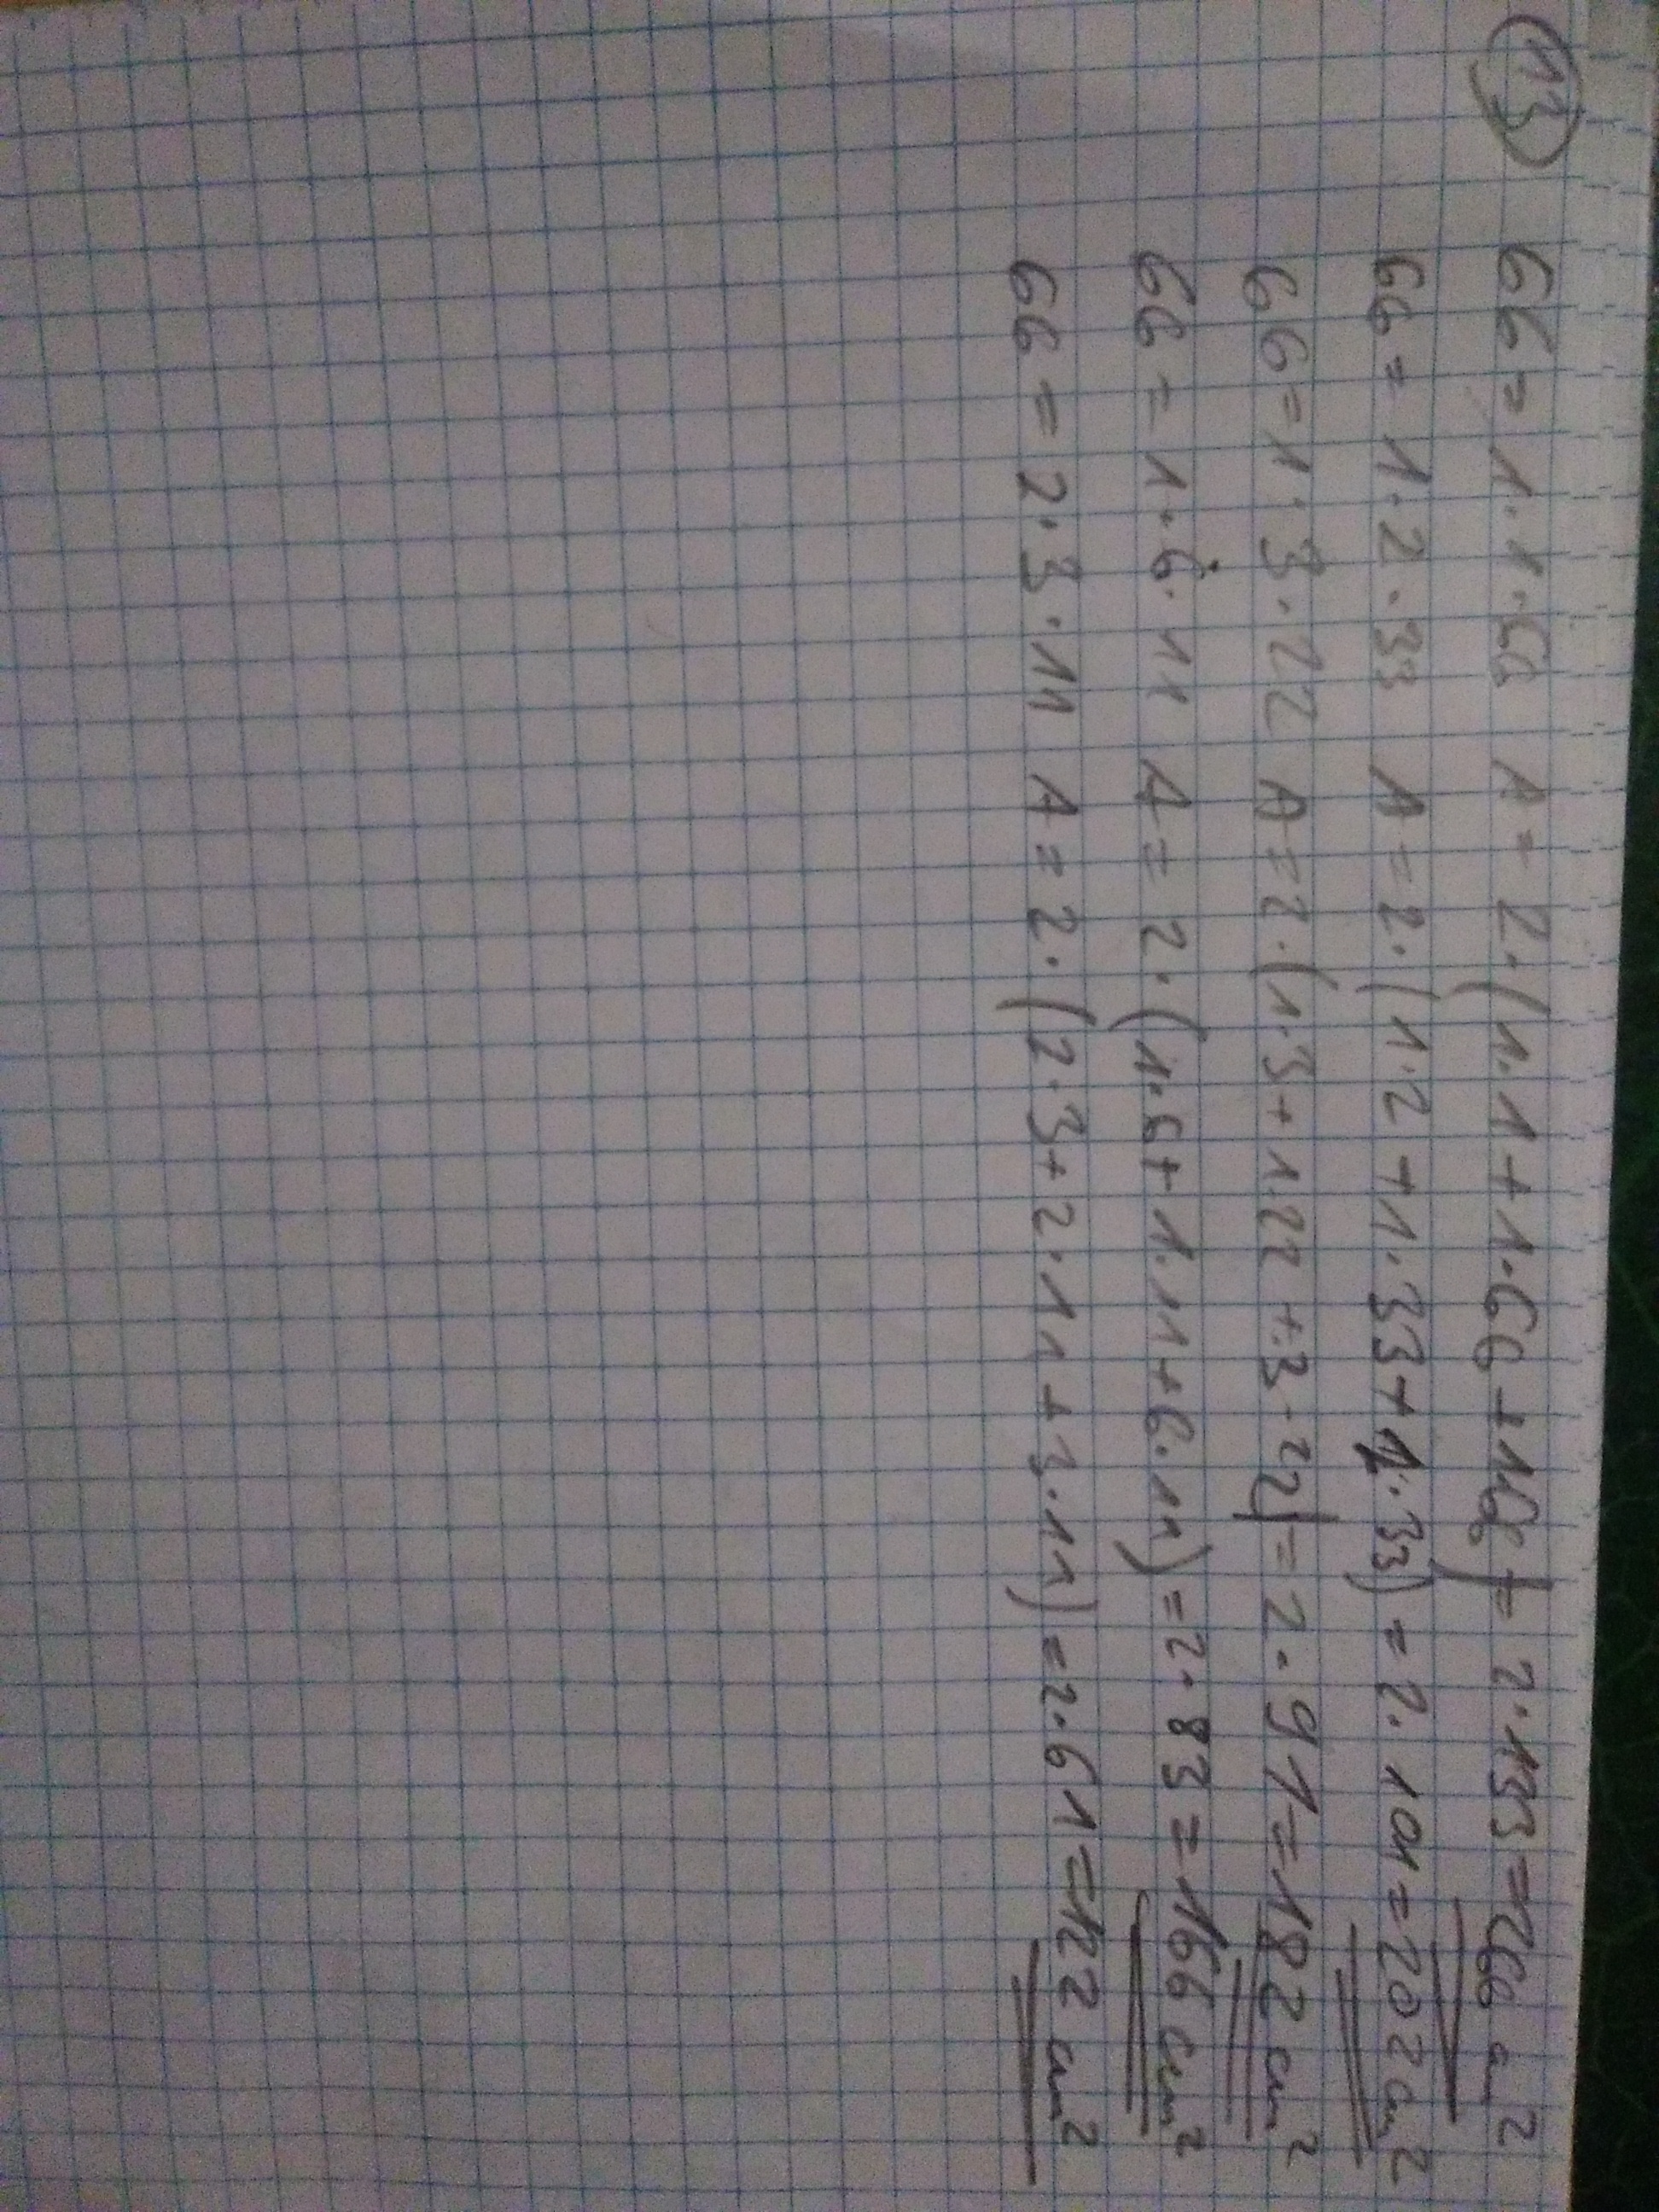 13) 66 = 1·1·66 A = 2·(1·1+1·66+1·66) = 2·133 = 266 cm²
66 = 1·2·33 A = 2·(1·2+1·33+2·33) = 2·101 = 202 cm²
66 = 1·3·22 A = 2·(1·3+1·22+3·22) = 2·91 = 182 cm²
66 = 1·6·11 A = 2·(1·6+1·11+6·11) = 2·83 = 166 cm²
66 = 2·3·11 A = 2·(2·3+2·11+3·11) = 2·61 = 122 cm²